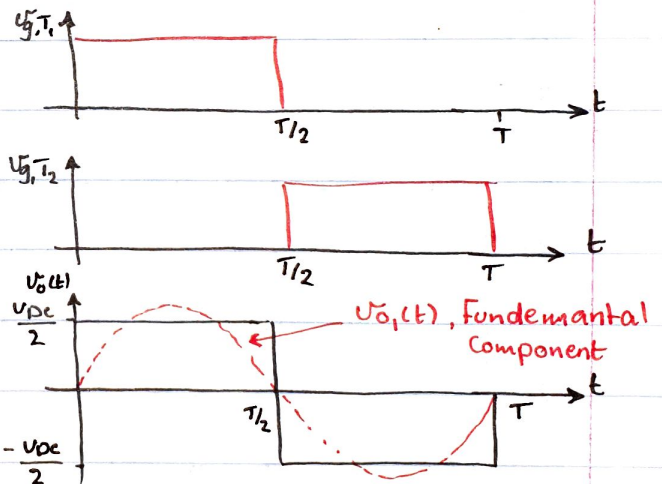 Vg,T₁
t
T/2
T
Vg,T₂
t
T/2
T
Vo(t)
VDC/2
Vo₁(t), Fundemantal
Component
t
T/2
T
- VDC/2